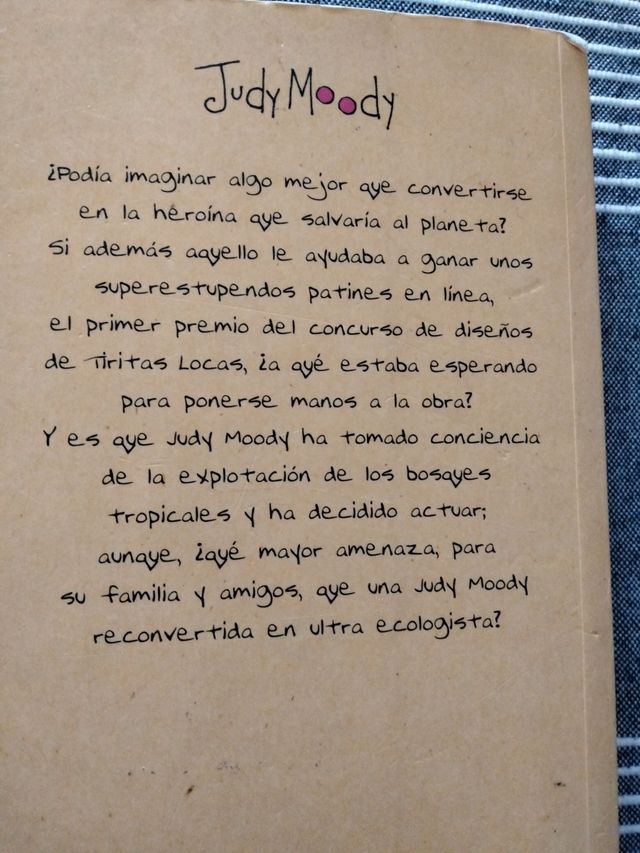 Judy Moody
¿Podía imaginar algo mejor que convertirse
en la heroína que salvaría al planeta?
Si además aquello le ayudaba a ganar unos
superestupendos patines en línea,
el primer premio del concurso de diseños
de Tiritas Locas, ¿a qué estaba esperando
para ponerse manos a la obra?
Y es que Judy Moody ha tomado conciencia
de la explotación de los bosques
tropicales y ha decidido actuar;
aunque, ¿qué mayor amenaza, para
su familia y amigos, que una Judy Moody
reconvertida en ultra ecologista?